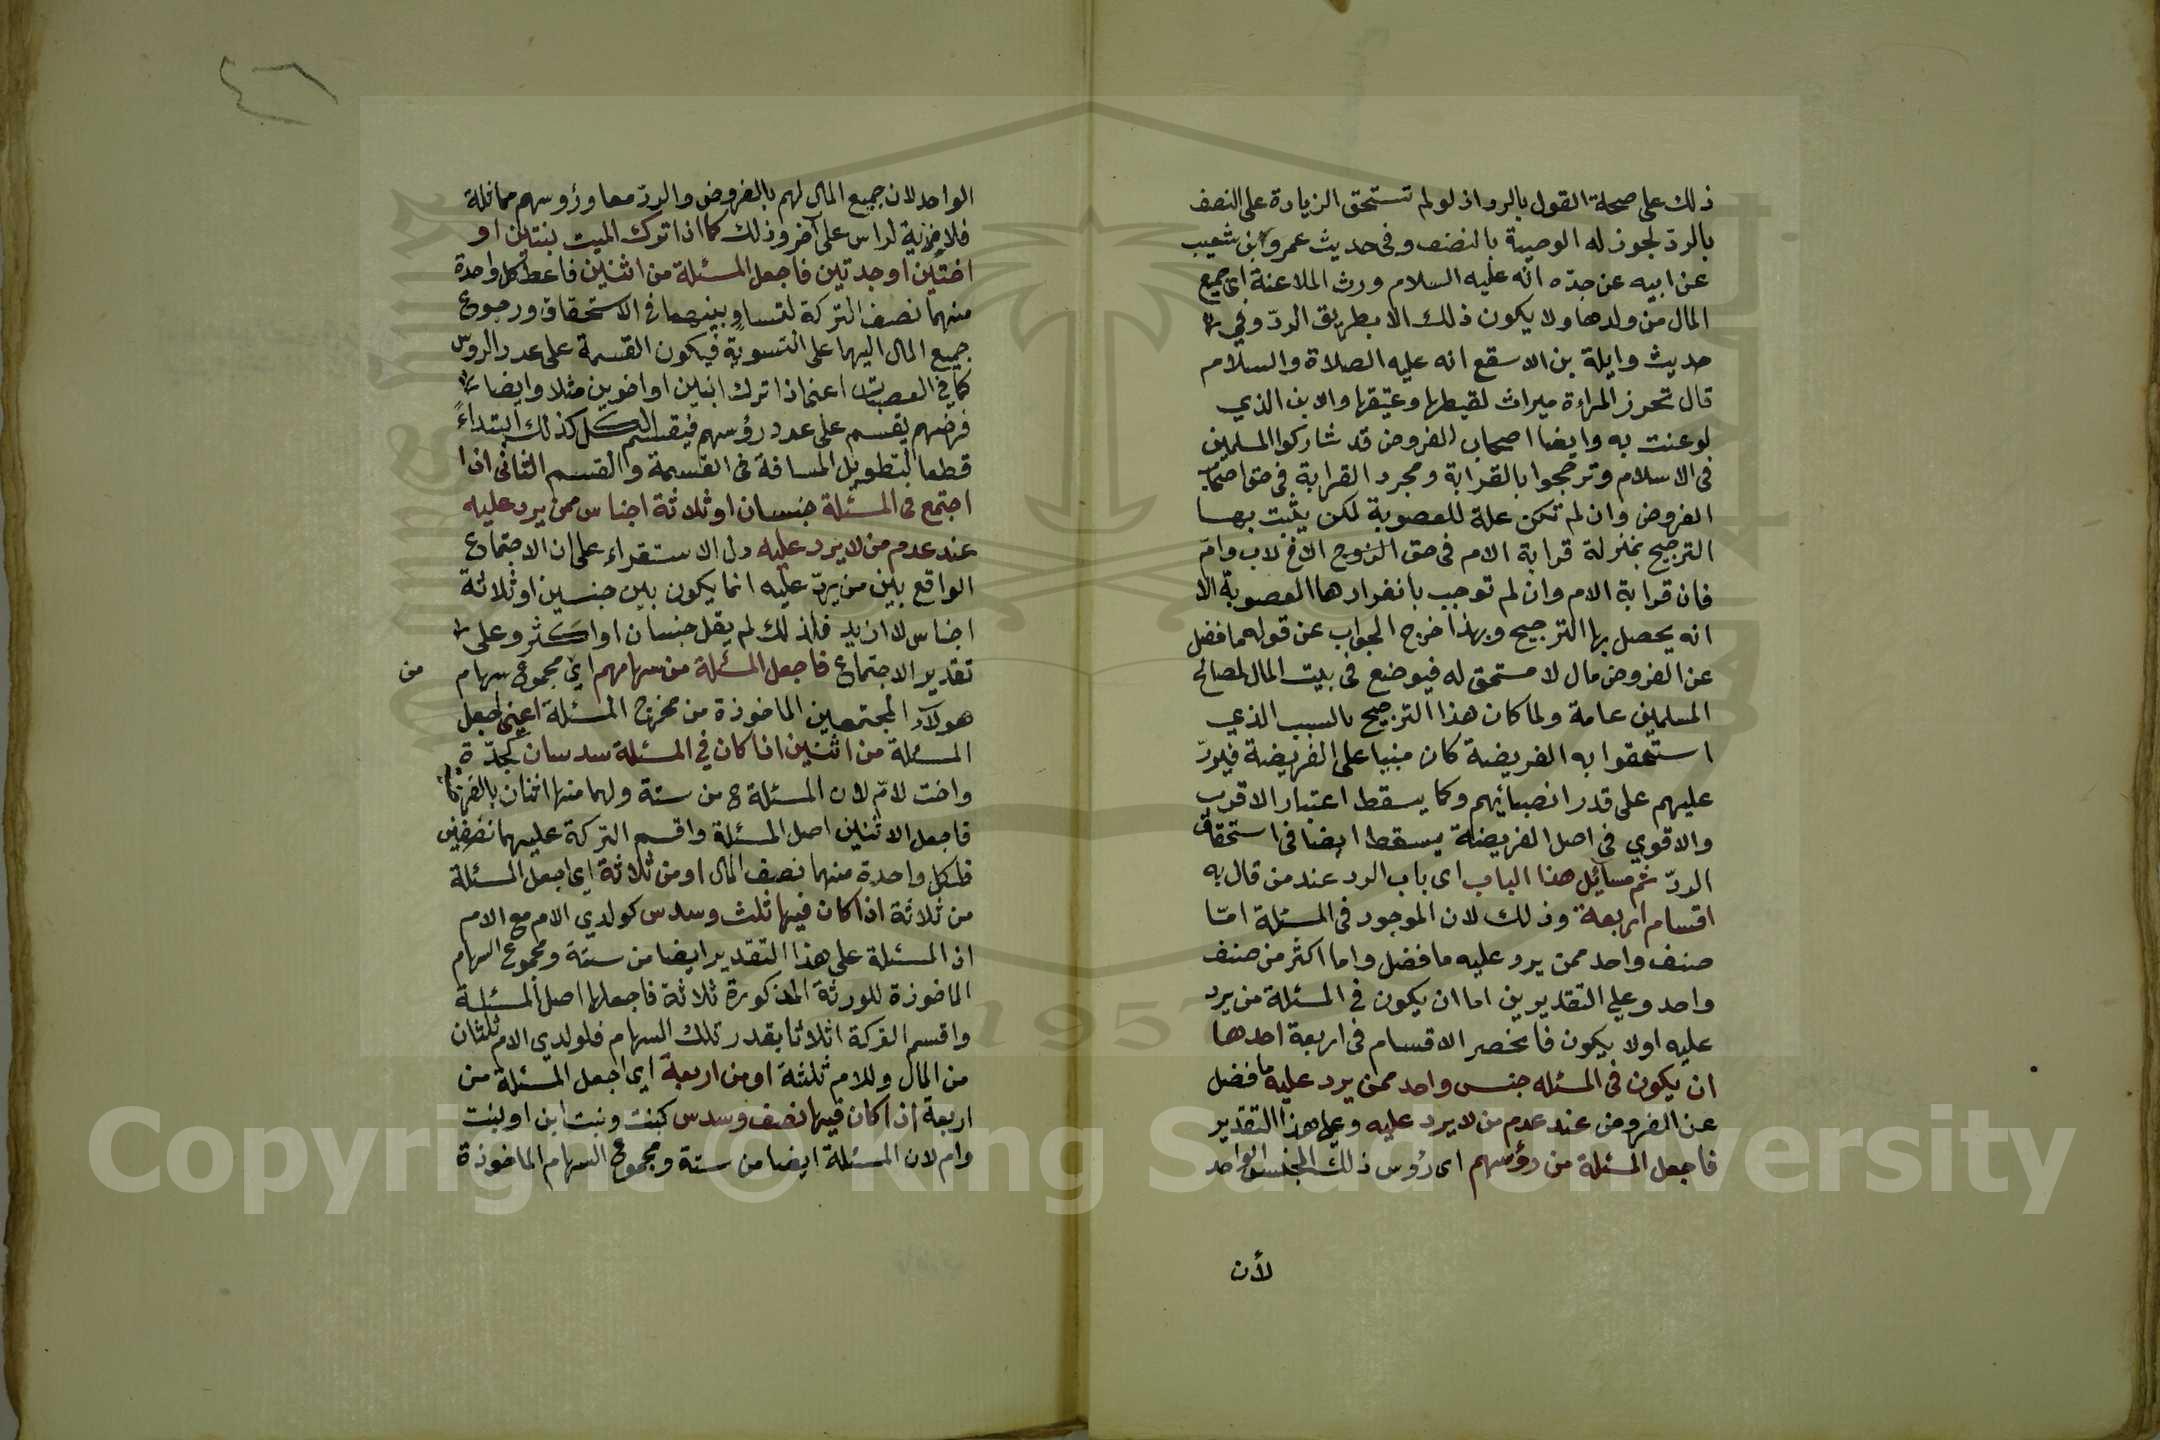 ذلك على صحلة القول بالرد اذ لو لم تستحق الزيادة على النصف
بالردّ لجوز له الوصية بالنصف وفى حديث عمرو ابن شعيب
عن ابيه عن جدّه انّه عليه السلام ورث الملاعنة اى جميع
المال من ولدها ولا يكون ذلك الا بطريق الردّ وفي
حديث وايلة بن الاسقع انه عليه الصلاة والسلام
قال تحوز المراءة ميراث لقيطها وعتيقها والابن الذي
لوعنت به وايضا اصحاب الفروض قد شاركوا المسلمين
فى الاسلام وترجحوا بالقرابة ومجرد القرابة فى حق اصحاب
الفروض وان لم تكن علة للعصوبة لكن يثبت بها
الترجيح بمنزلة قرابة الام فى حق الزوج الاخ لاب وامّ
فان قرابة الام وان لم توجب بانفرادها العصوبة الا
انه يحصل بها الترجيح وبهذا خرج الجواب عن قوله ما فضل
عن الفروض مال لا مستحق له فيوضع فى بيت المال لمصالح
المسلمين عامة ولما كان هذا الترجيح بالسبب الذي
استحقوا به الفريضة كان مبنيا على الفريضة فيردّ
عليهم على قدر انصبائهم وكما يسقط اعتبار الاقرب
والاقوي فى اصل الفريضة يسقط ايضا فى استحقاق
الردّ ثم مسايل هذا الباب اى باب الرد عند من قال به
اقسام اربعة وذلك لان الموجود فى المسئلة امّا
صنف واحد ممن يرد عليه ما فضل واما اكثر من صنف
واحد وعلي التقديرين اما ان يكون في المسئلة من يرد
عليه اولا يكون فانحصر الاقسام فى اربعة احدها
ان يكون فى المسئله جنس واحد ممن يرد عليه ما فضل
عن الفروض عند عدم من لا يرد عليه وعلي هذا التقدير
فاجعل المسئلة من رؤسهم اى رؤس ذلك الجنس الواحد
لأن
٤٦
الواحد لان جميع المال لهم بالفروض والردّ معا ورؤوسهم مماثلة
فلا مزية لراس على آخر وذلك كما اذا ترك الميت بنتين او
اختين او جدتين فاجعل المسئلة من اثنين فاعط كل واحدة
منهما نصف التركة لتساو بينهما فى الاستحقاق ورجوع
جميع المال اليهما على التسوية فيكون القسمة على عدد الروس
كما في العصبات اعنى اذا ترك ابنين او اخوين مثلا وايضا
فرضهم يقسم على عدد رؤسهم فيقسم الكل كذلك ابتداءً
قطعا لتطويل المسافة فى القسمة والقسم الثانى اذا
اجتمع فى المسئلة جنسان او ثلاثة اجناس ممن يرد عليه
عند عدم من لا يرد عليه دل الاستقراء على ان الاجتماع
الواقع بين من يردّ عليه انما يكون بين جنسين او ثلاثة
اجناس لا ازيد فلذلك لم يقل جنسان او اكثر وعلى
تقدير الاجتماع فاجعل المسئلة من سهامهم اي مجموع سهام
من
هولآء المجتمعين الماخوذة من مخرج المسئلة اعنى اجعل
المسئلة من اثنين اذا كان في المسئلة سدسان كجدّة
واخت لامّ لان المسئلة ح من ستة ولهما منها اثنان بالفريضة
فاجعل الاثنين اصل المسئلة واقسم التركة عليهما نصفين
فلكل واحدة منهما نصف المال او من ثلاثة اى اجعل المسئلة
من ثلاثة اذا كان فيها ثلث وسدس كولدي الام مع الام
اذ المسئلة على هذا التقدير ايضا من ستة ومجموع السهام
الماخوذة للورثة المذكورة ثلاثة فاجعلها اصل المسئلة
واقسم التركة اثلاثا بقدر تلك السهام فلولدي الام ثلثان
من المال وللام ثلثه او من اربعة اي اجعل المسئلة من
اربعة اذا كان فيها نصف وسدس كبنت وبنت ابن او بنت
وام لان المسئلة ايضا من ستة ومجموع السهام الماخوذة
Copyright © King Saud University
1957